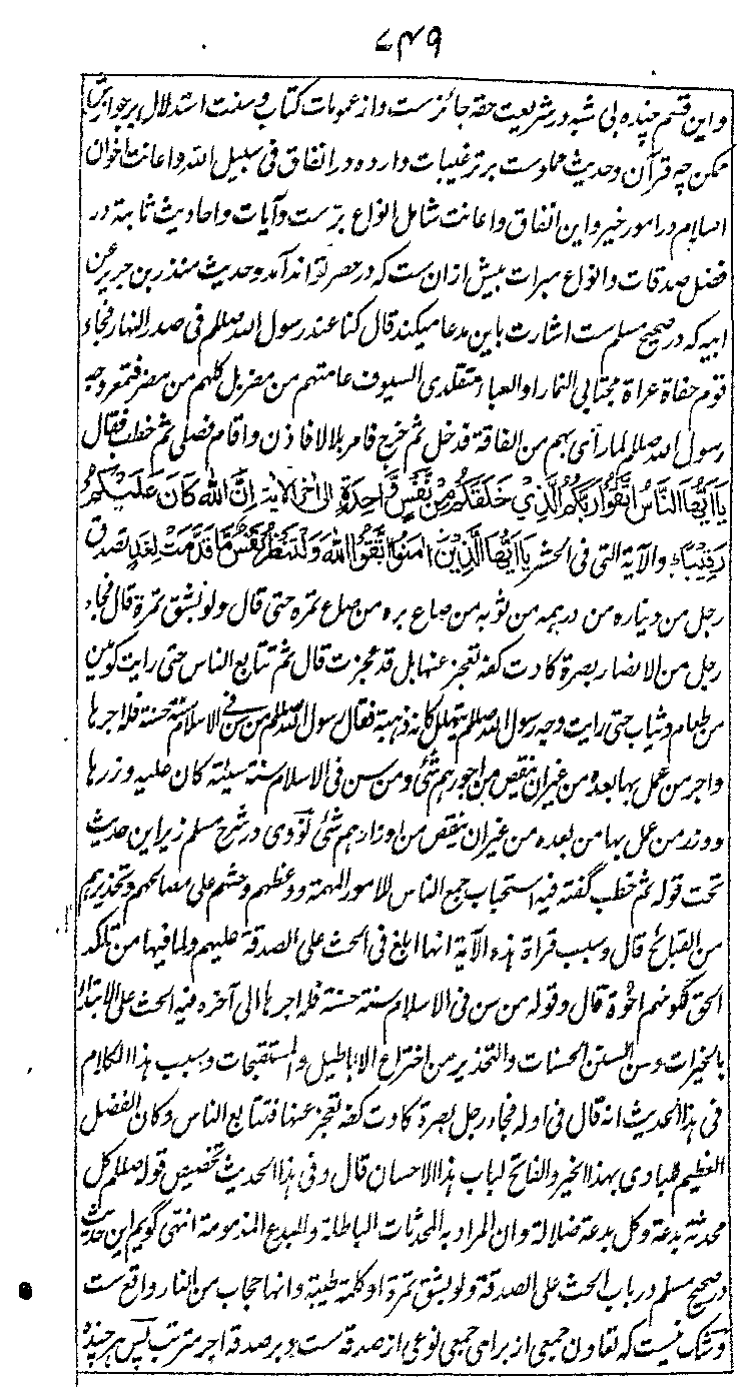 ۷۴۹
و این قسم چنده بی شبه در شریعت حقه جائز ست و از عمومات کتاب و سنت استدلال بر جواز این
ممکن چه قرآن و حدیث مملوست بر ترغیبات وارده در انفاق فی سبیل الله و اعانت اخوان
اسلام در امور خیر و این انفاق و اعانت شامل انواع برّ ست و آیات و احادیث ثابته در
فضل صدقات و انواع مبرات بیش ازان ست که در حصر تواند آمد و حدیث منذر بن جریر عن
ابیه که در صحیح مسلم ست اشارت باین مدعا میکند قال کنا عند رسول الله صللم فی صدر النهار فجاء
قوم حفاة عراة مجتابی النمار او العباء متقلدی السیوف عامتهم من مضر بل کلهم من مضر فتمعر وجه
رسول الله صللم لما رأی بهم من الفاقة فدخل ثم خرج فامر بلالا فاذن واقام فصلی ثم خطب فقال
يَا أَيُّهَا النَّاسُ اتَّقُوا رَبَّكُمُ الَّذِيْ خَلَقَكُمْ مِنْ نَفْسٍ وَّاحِدَةٍ الی اخر الایة اِنَّ اللهَ كَانَ عَلَيْكُمْ
رَقِيْبًا والآیة التی فی الحشر يَا أَيُّهَا الَّذِيْنَ اٰمَنُوا اتَّقُوا اللهَ وَلْتَنْظُرْ نَفْسٌ مَّا قَدَّمَتْ لِغَدٍ تصدق
رجل من دیناره من درهمه من ثوبه من صاع بره من صاع تمره حتی قال ولو بشق تمرة قال فجاء
رجل من الانصار بصرة کادت کفه تعجز عنها بل قد عجزت قال ثم تتابع الناس حتی رایت کومین
من طعام و ثیاب حتی رایت وجه رسول الله صللم یتهلل کانه ذهبیة فقال رسول الله صللم من سن فی الاسلام سنة حسنة فله اجرها
واجر من عمل بها بعده من غیر ان ینقص من اجورهم شئ ومن سن فی الاسلام سنة سیئة کان علیه وزرها
ووزر من عمل بها من بعده من غیر ان ینقص من اوزارهم شئ نووی در شرح مسلم زیر این حدیث
تحت قوله ثم خطب گفته فیه استحباب جمع الناس للامور المهمة ووعظهم وحثهم علی مصالحهم وتحذیرهم
من القبائح قال وسبب قراة هذه الآیة انها ابلغ فی الحث علی الصدقة علیهم ولما فیها من تاکد
الحق لکونهم اخوة قال وقوله من سن فی الاسلام سنة حسنة فله اجرها الی آخره فیه الحث علی الابتداء
بالخیرات وسن السنن الحسنات والتحذیر من اختراع الاباطیل والمستقبحات وسبب هذا الکلام
فی هذا الحدیث انه قال فی اوله فجاء رجل بصرة کادت کفه تعجز عنها فتتابع الناس وکان الفضل
العظیم للبادی بهذا الخیر والفاتح لباب هذا الاحسان قال وفی هذا الحدیث تخصیص قوله صللم کل
محدثة بدعة وکل بدعة ضلالة وان المراد به المحدثات الباطلة والبدع المذمومة انتهی گویم این حدیث
در صحیح مسلم در باب الحث علی الصدقة ولو بشق تمرة او کلمة طیبة وانها حجاب من النار واقع ست
و شک نیست که تعاون جمعی از برای جمعی نوعی از صدقه ست و بر صدقه اجر مترتب پس هر چنده